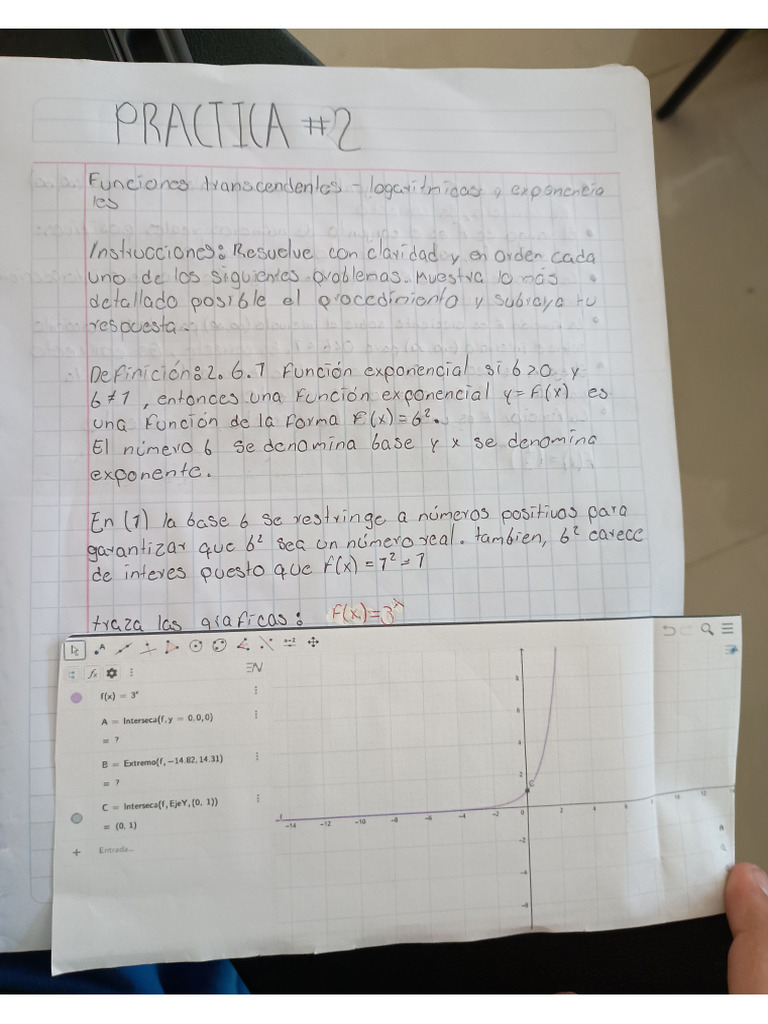 PRACTICA #2
Funciones transcendentes - logaritmicas y exponencia
les
Instrucciones: Resuelve con claridad y en orden cada
uno de los siguientes problemas. Muestra lo más
detallado posible el procedimiento y subraya tu
respuesta.
Definición: 2.6.1 Función exponencial si b>0 y
b≠1, entonces una función exponencial y=f(x) es
una función de la forma f(x)=b².
El número b se denomina base y x se denomina
exponente.
En (1) la base b se restringe a números positivos para
garantizar que b² sea un número real. tambien, b² carece
de interes puesto que f(x)=1²=1
traza las graficas: f(x)=3ˣ
f(x) = 3ˣ
A = Interseca(f, y = 0, 0, 0)
= ?
B = Extremo(f, -14.82, 14.31)
= ?
C = Interseca(f, EjeY, (0, 1))
= (0, 1)
+ Entrada...
f
C
8
6
4
2
-14 -12 -10 -8 -6 -4 -2 0 2 4 6 8 10 12 14
-2
-4
-6